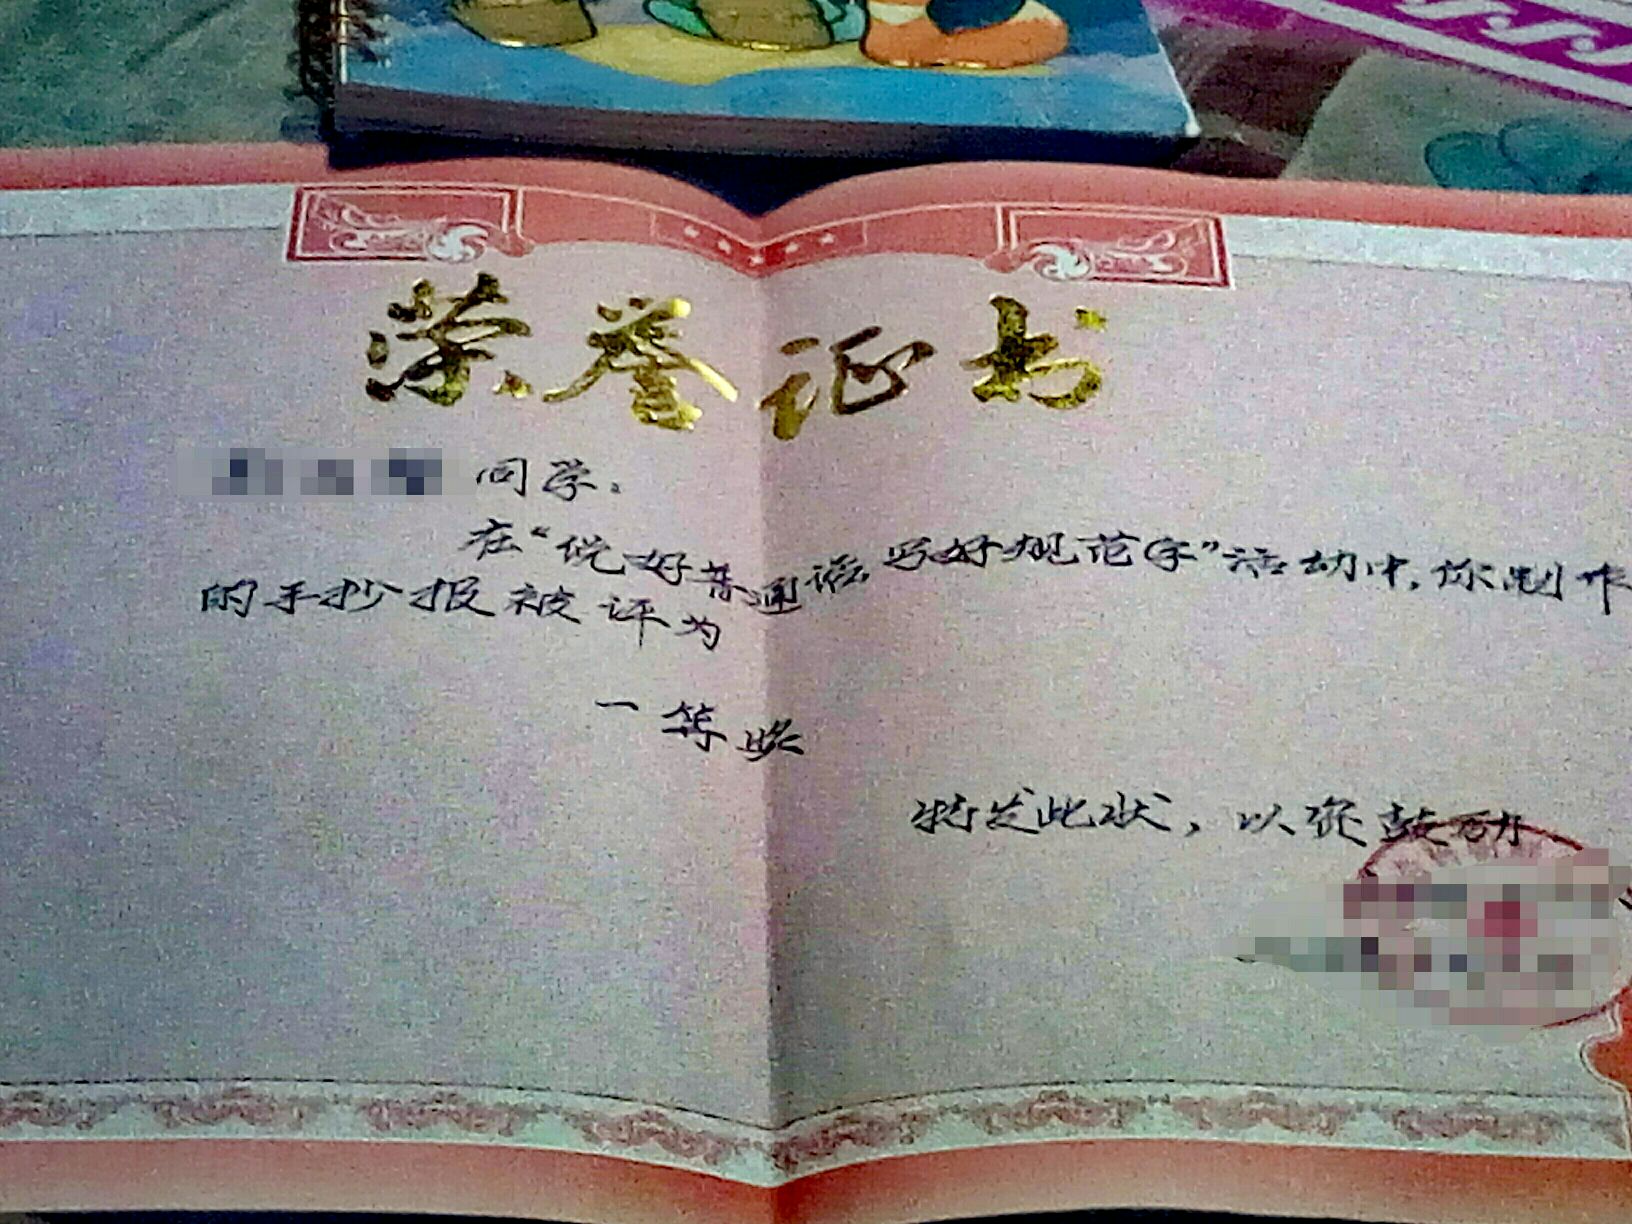 荣誉证书
同学:
在“说好普通话,写好规范字”活动中,你制作
的手抄报被评为
一等奖
特发此状,以资鼓励